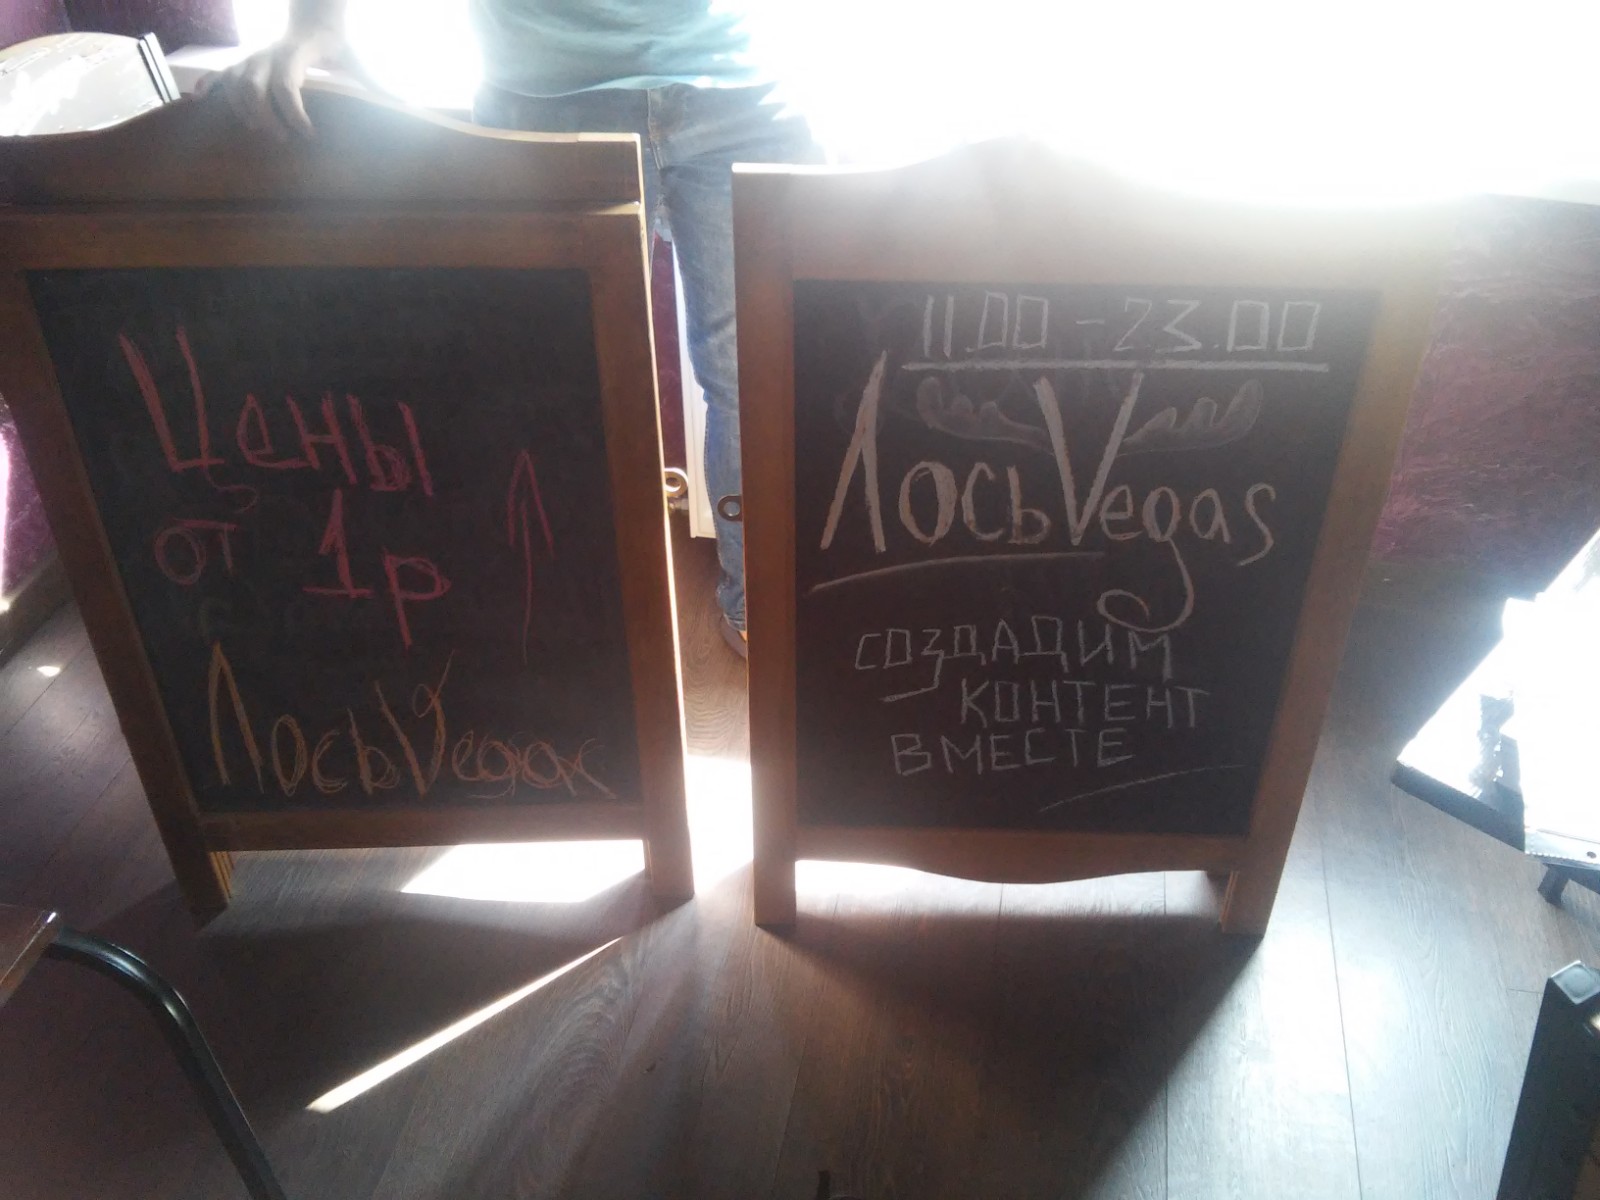 Цены
от 1р
ЛосьVegas
11.00 - 23.00
ЛосьVegas
СОЗДАДИМ
КОНТЕНТ
ВМЕСТЕ